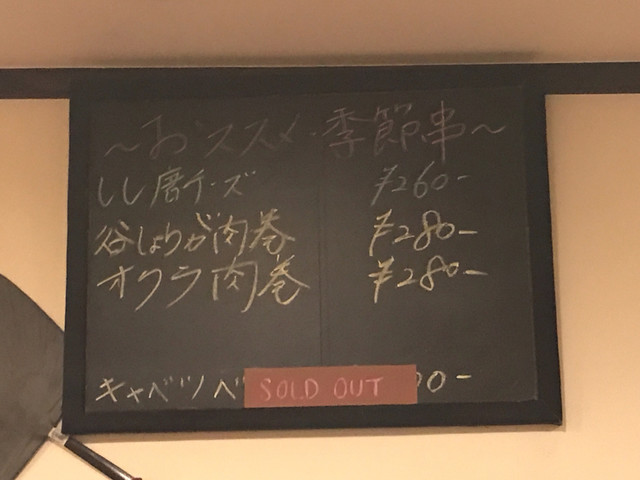 ~おススメ・季節串~
しし唐チーズ ¥260-
谷しょうが肉巻 ¥280-
オクラ肉巻 ¥280-
キャベツベ SOLD OUT 00-